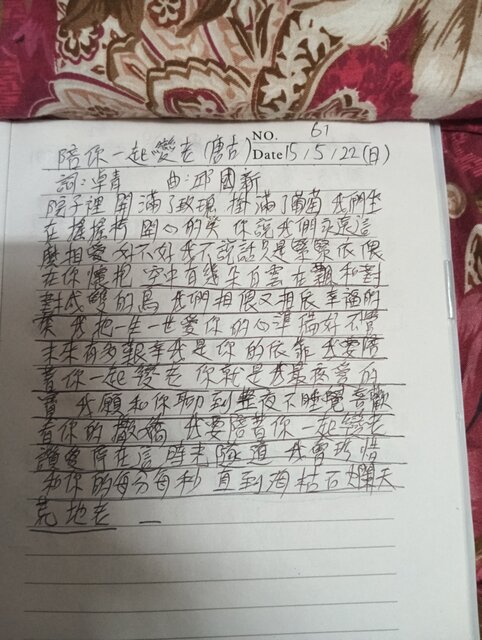 NO. 61
陪你一起變老 (唐古) Date 15/5/22(日)
詞:卓青 曲:邱國新
院子裡開滿了玫瑰 掛滿了葡萄 我們坐
在搖搖椅開心的笑 你說我們永遠這
麼相愛好不好 我不說話只是緊緊依偎
在你懷抱 空中有幾朵白雲在飄和對
對成雙的鳥 我們相偎又相依幸福的
笑 我把一生一世愛你的心準備好 不管
未來有多艱辛我是你的依靠 我要陪
著你一起變老 你就是我最疼愛的
寶 我願和你聊到半夜不睡覺 喜歡
看你的撒嬌 我要陪著你一起變老
讓愛存在這時光隧道 我會珍惜
和你的每分每秒 直到海枯石爛天
荒地老